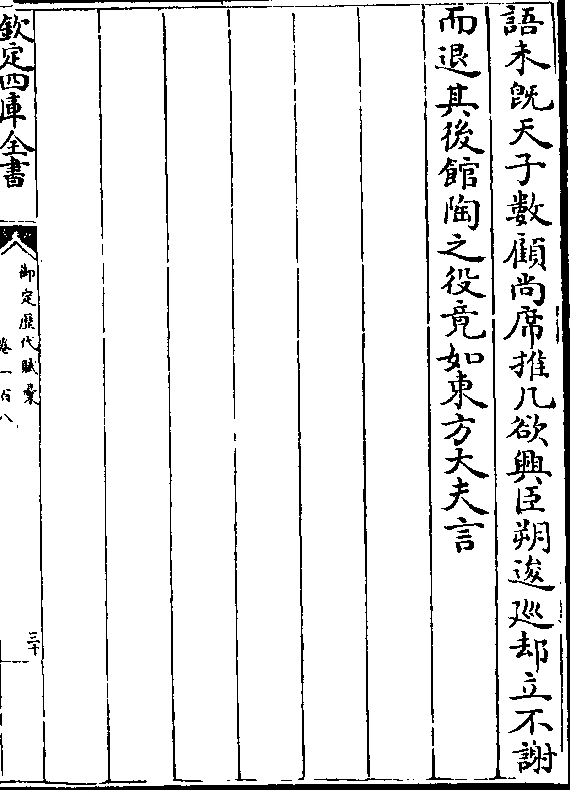 語未旣天子數顧尚席推几欲興臣朔逡廵却立不謝
而退其後館陶之役竟如東方大夫言
欽定四庫全書
御定歷代賦彙
卷一百八
三十